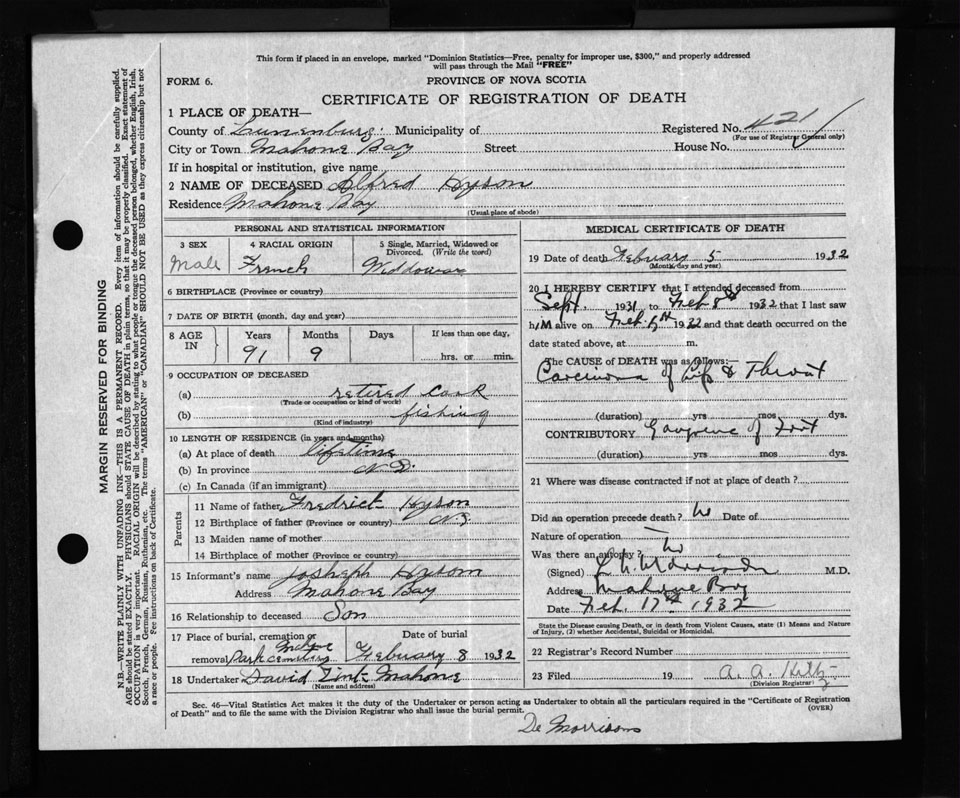 This form if placed in an envelope, marked "Dominion Statistics—Free, penalty for improper use, $300," and properly addressed
will pass through the Mail "FREE"
FORM 6.
PROVINCE OF NOVA SCOTIA
CERTIFICATE OF REGISTRATION OF DEATH
1 PLACE OF DEATH—
County of Lunenburg Municipality of
Registered No. 421
(For use of Registrar General only)
City or Town Mahone Bay Street House No.
If in hospital or institution, give name
2 NAME OF DECEASED Alfred Hyson
Residence Mahone Bay
(Usual place of abode)
PERSONAL AND STATISTICAL INFORMATION
3 SEX
Male
4 RACIAL ORIGIN
French
5 Single, Married, Widowed or
Divorced. (Write the word)
Widdower
6 BIRTHPLACE (Province or County)
7 DATE OF BIRTH (month, day and year)
8 AGE
IN
Years
91
Months
9
Days
If less than one day,
hrs. or min.
9 OCCUPATION OF DECEASED
(a) retired Cook
(Trade or occupation or kind of work)
(b) fishing
(Kind of industry)
10 LENGTH OF RESIDENCE (in years and months)
(a) At place of death lifetime
(b) In province
(c) In Canada (if an immigrant)
Parents
11 Name of father Fredrick Hyson
12 Birthplace of father (Province or country) N.S.
13 Maiden name of mother
14 Birthplace of mother (Province or country)
15 Informant's name Josheph Hyson
Address Mahone Bay
16 Relationship to deceased Son
17 Place of burial, cremation or
removal Park cemitery
Date of burial
Februrary 8 1932
18 Undertaker David Mahone
(Name and address)
MEDICAL CERTIFICATE OF DEATH
19 Date of death February 5 1932
(Month, day and year)
20 I HEREBY CERTIFY that I attended deceased from
Sept. 1931 to Feb 1932 that I last saw
him alive on Feb 1932 and that death occurred on the
date stated above, at m.
The CAUSE of DEATH was as follows:—
Carcinoma of Lip & Throat
(duration) yrs mos dys.
CONTRIBUTORY Gangrene of Foot
(duration) yrs mos dys.
21 Where was disease contracted if not at place of death?
Did an operation precede death? No Date of
Nature of operation
Was there an autopsy? No
(Signed) Morrison M.D.
Address Mahone Bay
Date Feb. 17th 1932
State the Disease causing Death, or in death from Violent Causes, state (1) Means and Nature
of Injury, (2) whether Accidental, Suicidal or Homicidal.
22 Registrar's Record Number
23 Filed 19 A. A.
(Division Registrar)
Sec. 46—Vital Statistics Act makes it the duty of the Undertaker or person acting as Undertaker to obtain all the particulars required in the "Certificate of Registration
of Death" and to file the same with the Division Registrar who shall issue the burial permit.
(OVER)
De Morrison
MARGIN RESERVED FOR BINDING
N.B.—WRITE PLAINLY WITH UNFADING INK—THIS IS A PERMANENT RECORD. Every item of information should be carefully supplied.
AGE should be stated EXACTLY. PHYSICIANS should STATE CAUSE OF DEATH in plain terms, so that it may be properly classified. Exact statement of
OCCUPATION is very important. RACIAL ORIGIN will be described by stating to what people or tongue the deceased person belonged, whether English, Irish,
Scotch, French, German, Russian, Ruthenian, etc. The terms "AMERICAN" or "CANADIAN" SHOULD NOT BE USED as they express citizenship but not
a race or people. See instructions on back of Certificate.